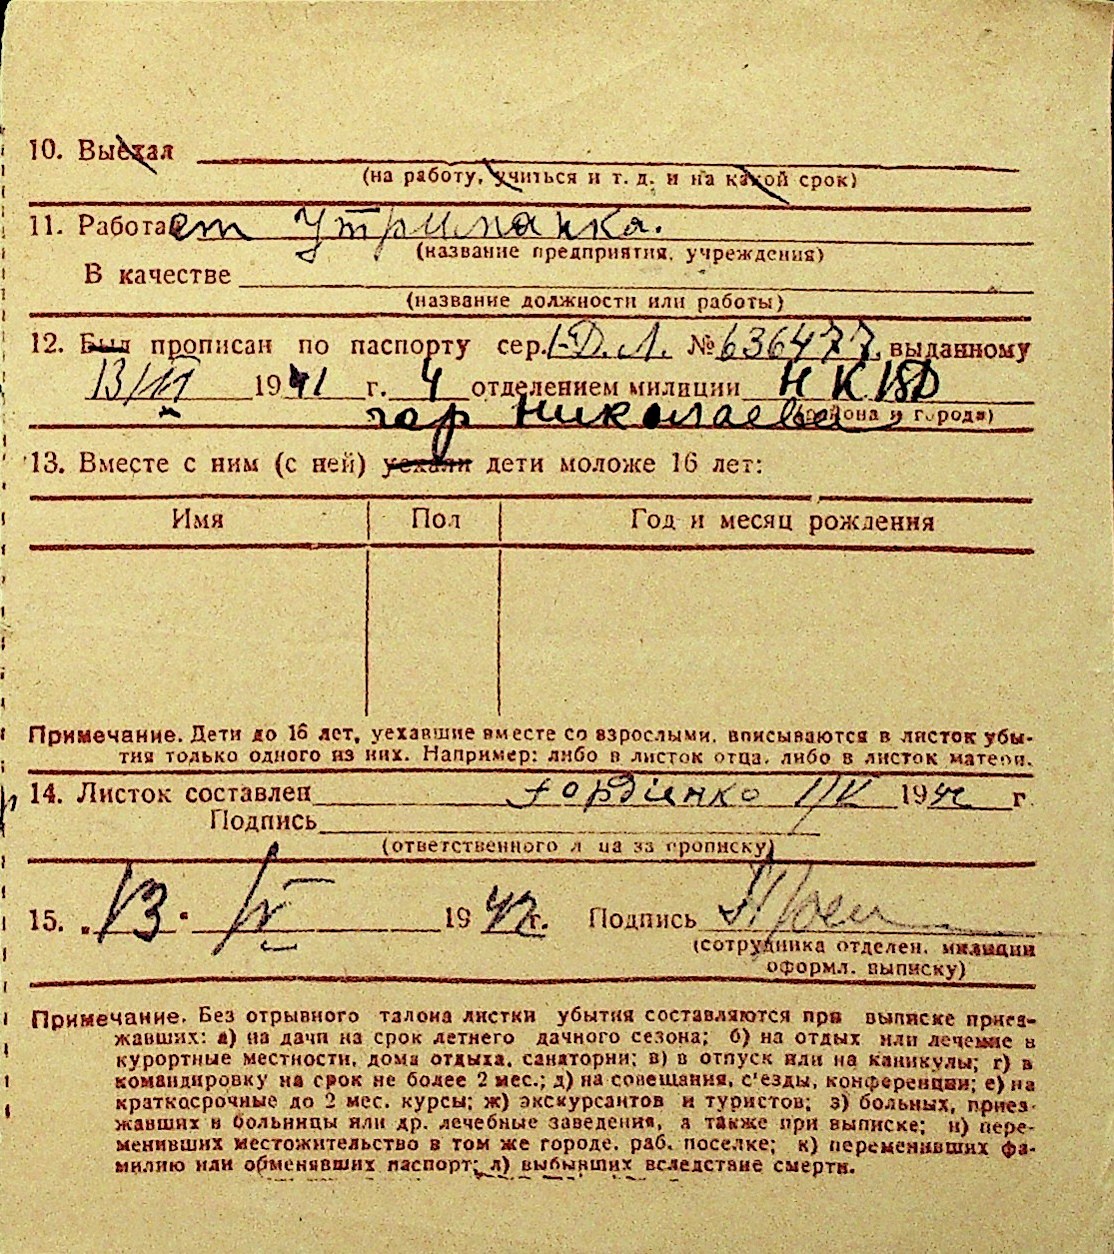 10. Выехал
(на работу, учиться и т. д. и на какой срок)
11. Работает Утриманка.
(название предприятия, учреждения)
В качестве
(название должности или работы)
12. Был прописан по паспорту сер. I-Д.Л. № 636477, выданному
13/VI 1941 г. 4 отделением милиции НКВД
гор Николаева (района и города)
13. Вместе с ним (с ней) уехали дети моложе 16 лет:
Имя Пол Год и месяц рождения
Примечание. Дети до 16 лет, уехавшие вместе со взрослыми, вписываются в листок убы-
тия только одного из них. Например: либо в листок отца, либо в листок матери.
14. Листок составлен Гордиенко 1942 г
Подпись
(ответственного лица за прописку)
15. „13" IV 1942 г. Подпись
(сотрудника отделен. милиции
оформл. выписку)
Примечание. Без отрывного талона листки убытия составляются при выписке приез-
жавших: а) на дачи на срок летнего дачного сезона; б) на отдых или лечение в
курортные местности, дома отдыха, санатории; в) в отпуск или на каникулы; г) в
командировку на срок не более 2 мес.; д) на совещания, с'езды, конференции; е) на
краткосрочные до 2 мес. курсы; ж) экскурсантов и туристов; з) больных, приез-
жавших в больницы или др. лечебные заведения, а также при выписке; и) пере-
менивших местожительство в том же городе, раб. поселке; к) переменивших фа-
милию или обменявших паспорт; л) выбывших вследствие смерти.